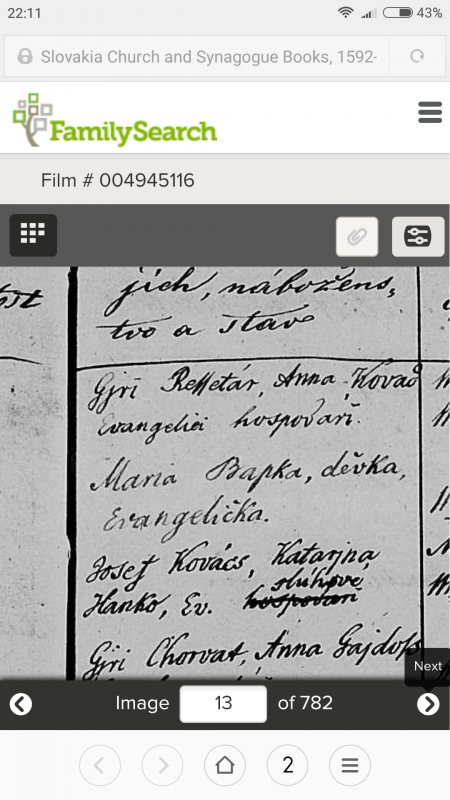 22:11
43%
Slovakia Church and Synagogue Books, 1592-
FamilySearch
Film # 004945116
jich, nábožens,
tvo a stav
Gjrí Reſſetár, Anna Kovač
Evangelici hospodari.
Maria Bapka, děvka,
Evangelička.
Josef Kovács, Katarjna
slúhové
Hanko, Ev. hospodari
Gjri Chorvat, Anna Gajdoſs
Next
Image 13 of 782
2